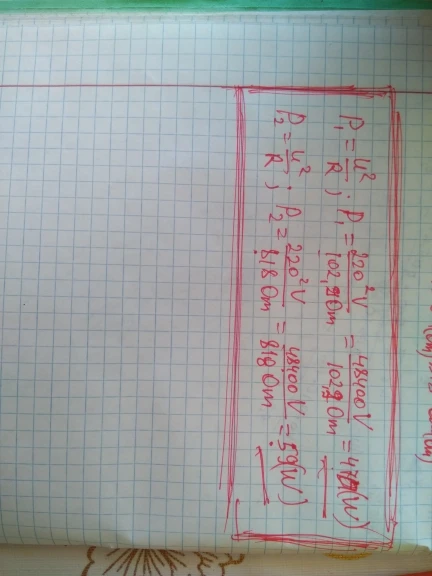 P₁ = U²/R ; P₁ = 220²V/102,9Om = 48400V/102,9Om = 470(W)
P₂ = U²/R ; P₂ = 220²V/818Om = 48400V/818Om = 59(W)